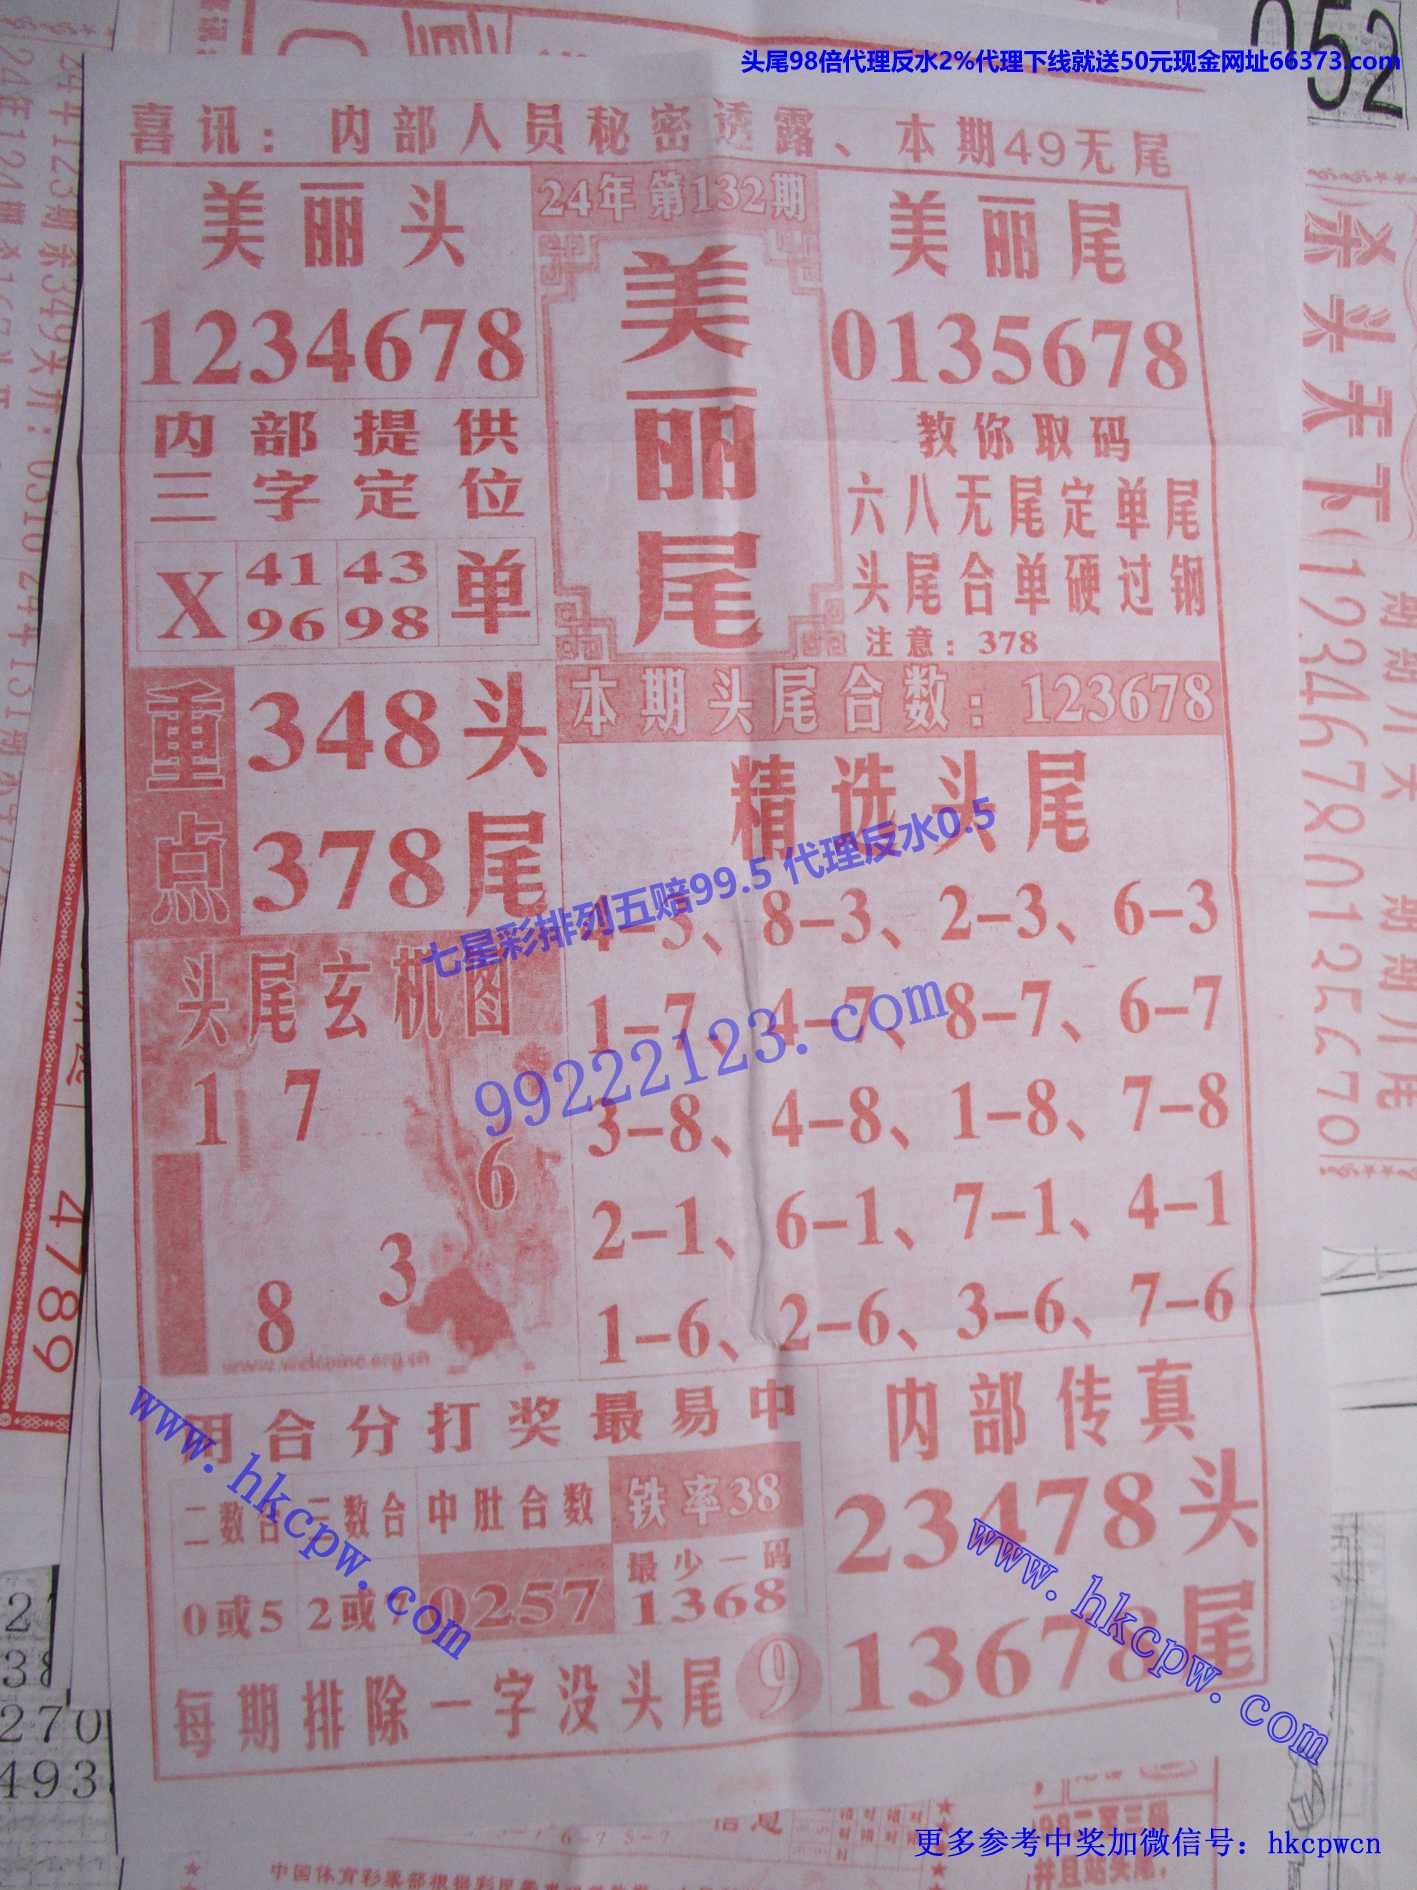 头尾98倍代理反水2%代理下线就送50元现金网址66373.com
052
喜讯：内部人员秘密透露、本期49无尾
美丽头
1234678
24年第132期
美丽尾
美丽尾
0135678
内部提供
三字定位
X 41 43 单
96 98
教你取码
六八无尾定单尾
头尾合单硬过钢
注意：378
重点
348头
378尾
本期头尾合数：123678
精选头尾
4-3、8-3、2-3、6-3
1-7、4-7、8-7、6-7
3-8、4-8、1-8、7-8
2-1、6-1、7-1、4-1
1-6、2-6、3-6、7-6
七星彩排列五赔99.5 代理反水0.5
99222123.com
头尾玄机图
1 7
6
3
8
www.welcome.org.cn
用合分打奖最易中
二数合 三数合 中肚合数 铁率38
0或5 2或7 0257 最少一码
1368
每期排除一字没头尾 9
内部传真
23478头
13678尾
www.hkcpw.com
www.hkcpw.com
杀头天下
4789
270
493
更多参考中奖加微信号：hkcpwcn